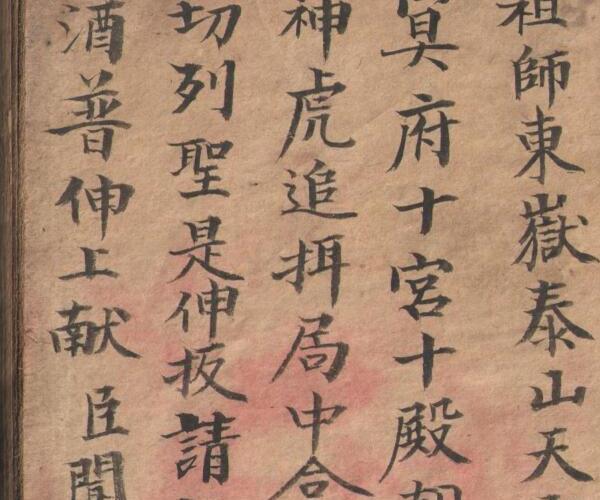 祖師東嶽泰山天
冥府十宮十殿
神虎追攝局中合
切列聖是伸扳請
酒普伸上献臣聞